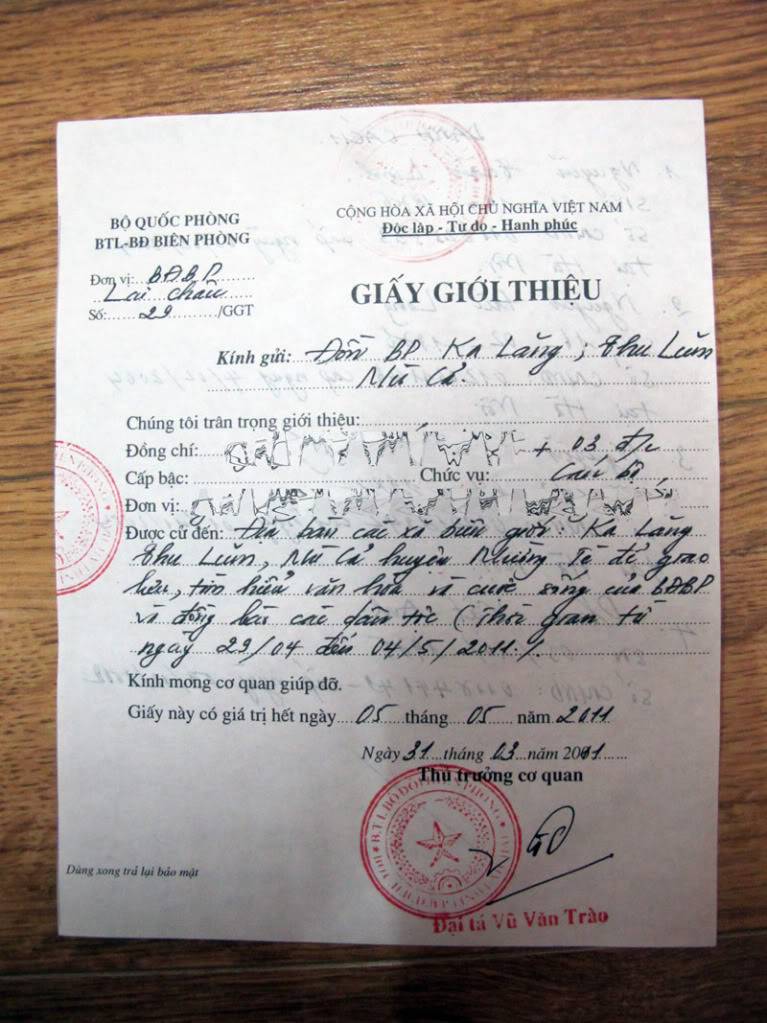 BỘ QUỐC PHÒNG
BTL-BĐ BIÊN PHÒNG
CỘNG HÒA XÃ HỘI CHỦ NGHĨA VIỆT NAM
Độc lập - Tự do - Hạnh phúc
Đơn vị: BĐBP
Lai Châu
Số: 29 /GGT
GIẤY GIỚI THIỆU
Kính gửi: Đồn BP Ka Lăng; Thu Lũm
Mù Cả.
Chúng tôi trân trọng giới thiệu:
Đồng chí: + 03 đ/c
Cấp bậc: Chức vụ: Cán bộ
Đơn vị:
Được cử đến: Địa bàn các xã biên giới: Ka Lăng
Thu Lũm, Mù Cả huyện Mường Tè để giao
lưu, tìm hiểu văn hóa và cuộc sống của BĐBP
và đồng bào các dân tộc (Thời gian từ
ngày 29/04 đến 04/5/2011./.
Kính mong cơ quan giúp đỡ.
Giấy này có giá trị hết ngày 05 tháng 05 năm 2011
Ngày 31 tháng 03 năm 2011
Thủ trưởng cơ quan
Dùng xong trả lại bảo mật
Đại tá Vũ Văn Trào